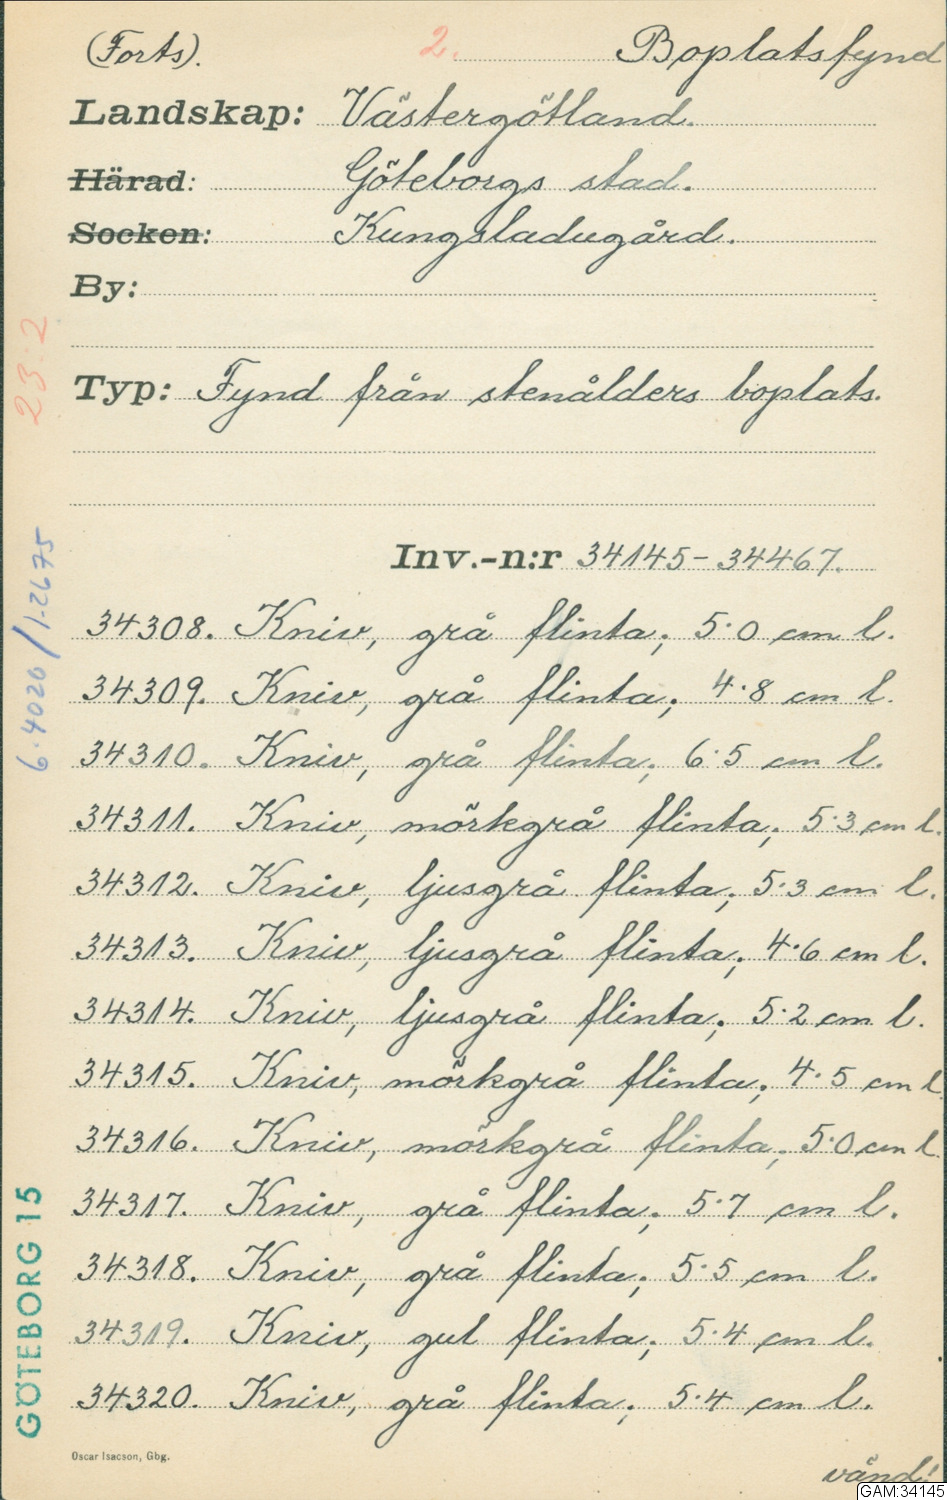 (Forts). 2. Boplatsfynd
Landskap: Västergötland.
Härad: Göteborgs stad.
Socken: Kungsladugård.
By:
Typ: Fynd från stenålders boplats.
Inv.-n:r 34145-34467.
34308. Kniv, grå flinta; 5.0 cm l.
34309. Kniv, grå flinta; 4.8 cm l.
34310. Kniv, grå flinta; 6.5 cm l.
34311. Kniv, mörkgrå flinta; 5.3 cm l.
34312. Kniv, ljusgrå flinta; 5.3 cm l.
34313. Kniv, ljusgrå flinta; 4.6 cm l.
34314. Kniv, ljusgrå flinta; 5.2 cm l.
34315. Kniv, mörkgrå flinta; 4.5 cm l
34316. Kniv, mörkgrå flinta; 5.0 cm l.
34317. Kniv, grå flinta; 5.7 cm l.
34318. Kniv, grå flinta; 5.5 cm l.
34319. Kniv, gul flinta; 5.4 cm l.
34320. Kniv, grå flinta; 5.4 cm l.
Oscar Isacson, Gbg.
vänd!
GAM:34145
23:2
6.4020/1-2675
GÖTEBORG 15